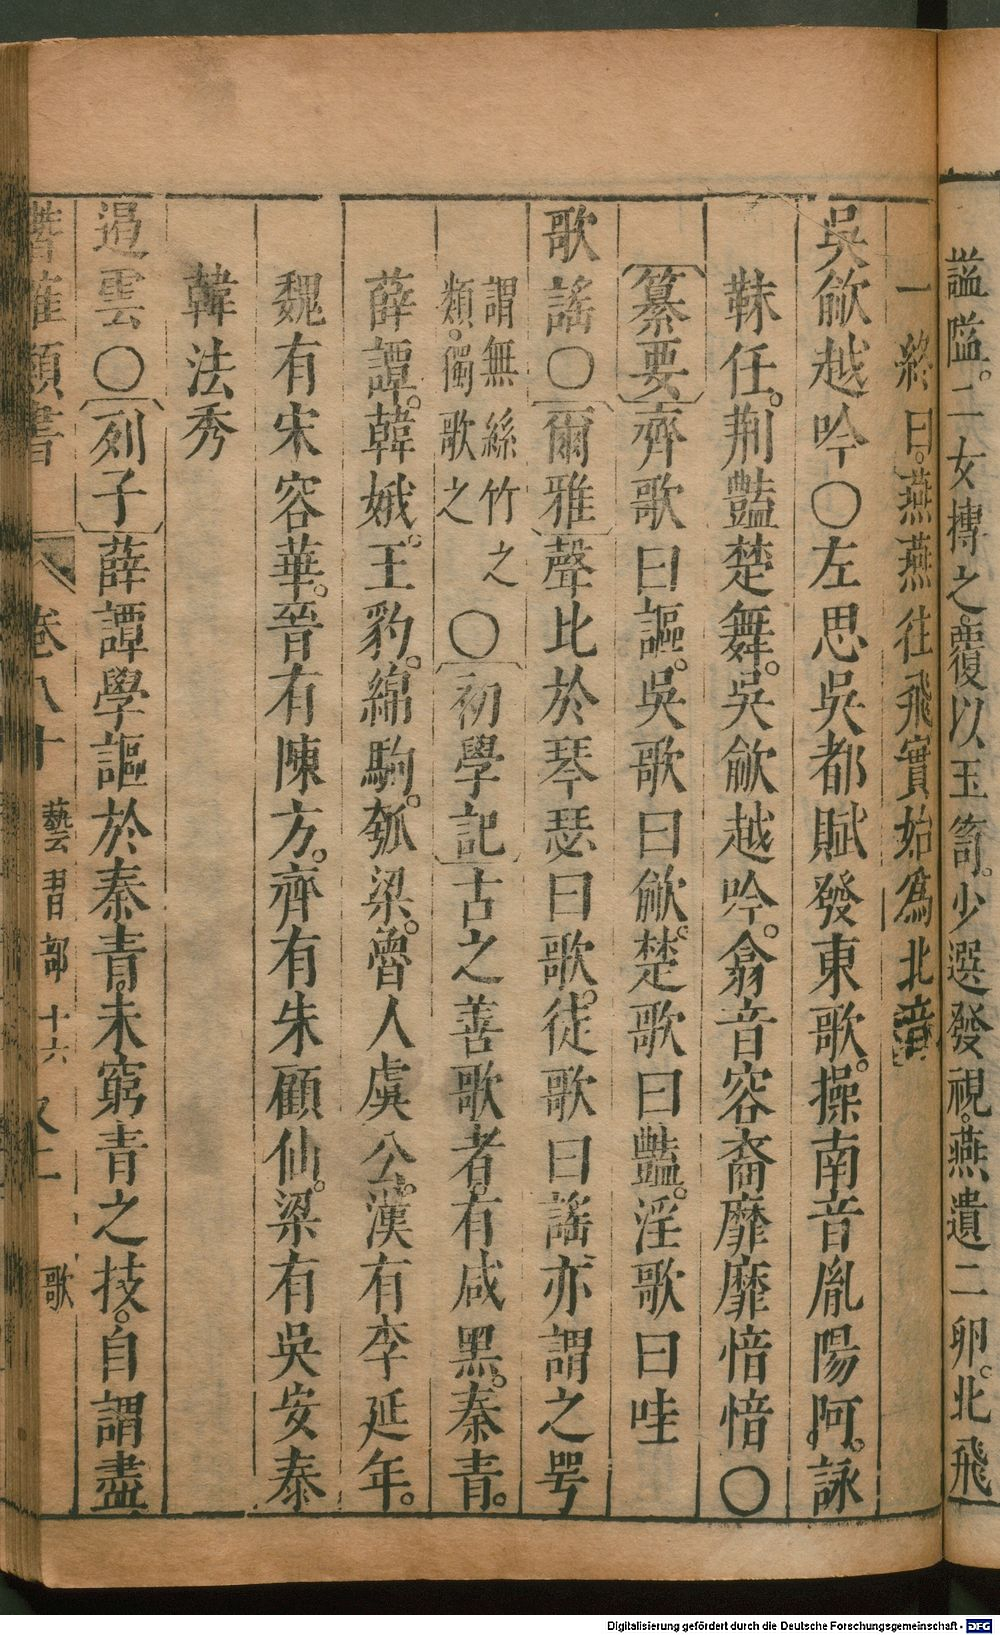 謚隘。二女摶之。覆以玉筐。少選發視。燕遺二卵。北飛
一終曰。燕燕往飛實始爲北音
吳歈越吟〇左思吳都賦發東歌。操南音胤陽阿。詠
韎任。荆豔楚舞。吳歈越吟。翕音容裔靡靡愔愔〇
纂要齊歌曰謳。吳歌曰歈。楚歌曰豔。淫歌曰哇
歌謠〇爾雅聲比於琴瑟曰歌。徒歌曰謠亦謂之咢
謂無絲竹之
類。獨歌之
〇初學記古之善歌者。有咸黑。秦青。
薛譚。韓娥。王豹。綿駒。瓠梁。魯人虞公。漢有李延年。
魏有宋容華。晉有陳方。齊有朱顧仙。梁有吳安泰
韓法秀
遏雲〇列子薛譚學謳於秦青。未窮青之技。自謂盡
卷八十 藝習部十六 又二 歌
Digitalisierung gefördert durch die Deutsche Forschungsgemeinschaft - DFG